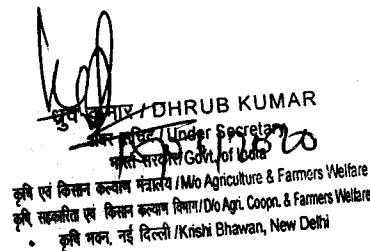 ध्रुव कुमार / DHRUB KUMAR
अवर सचिव / Under Secretary
भारत सरकार / Govt. of India
कृषि एवं किसान कल्याण मंत्रालय / M/o Agriculture & Farmers Welfare
कृषि सहकारिता एवं किसान कल्याण विभाग / D/o Agri. Coopn. & Farmers Welfare
कृषि भवन, नई दिल्ली / Krishi Bhawan, New Delhi